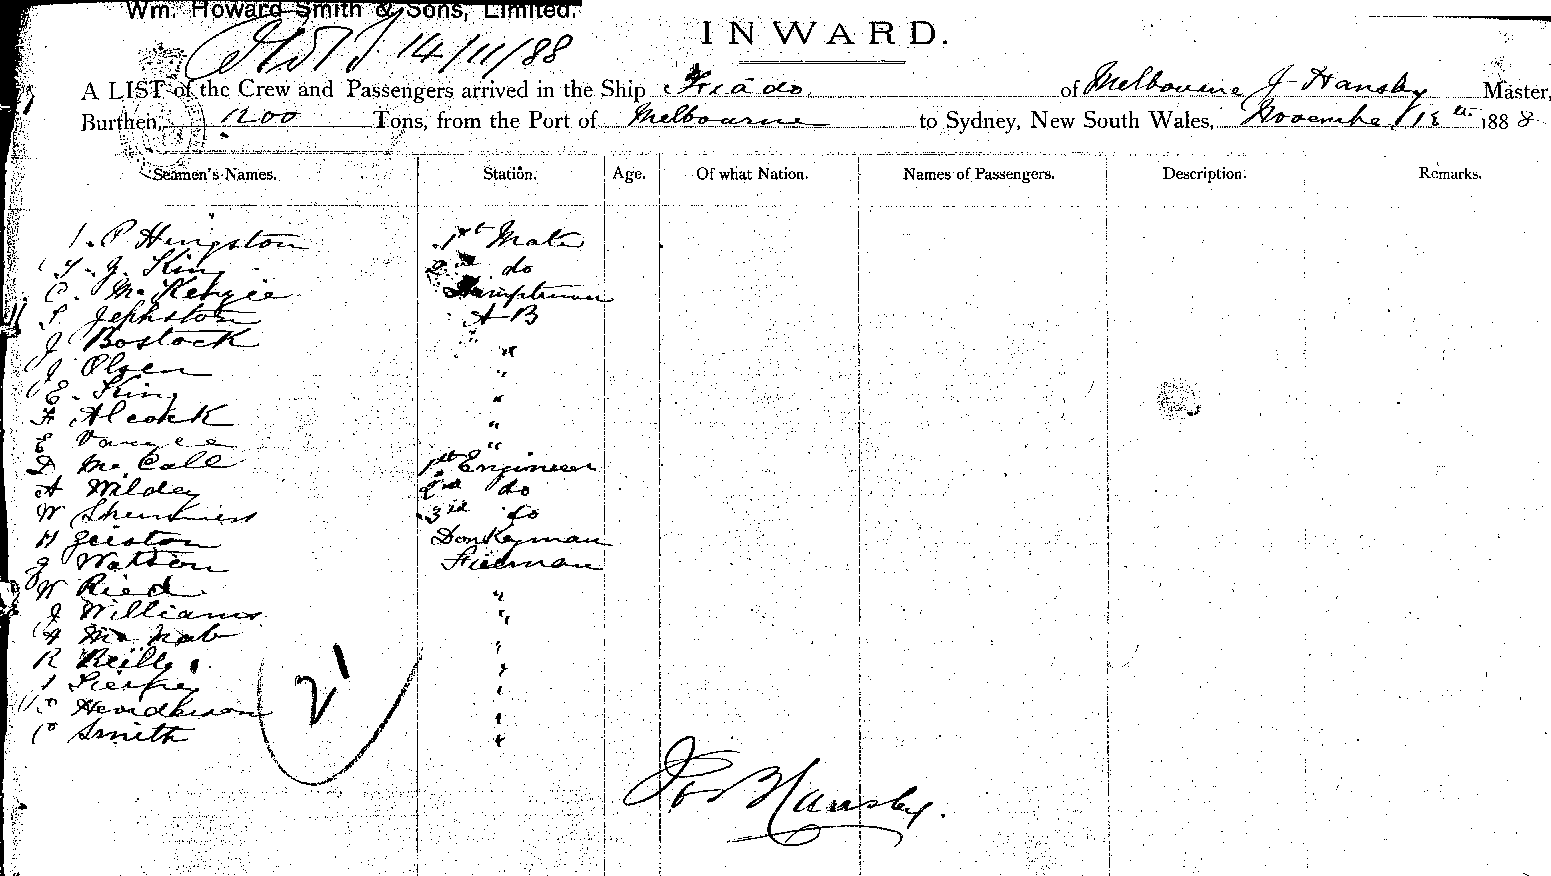 Wm. Howard Smith & Sons, Limited.
14/11/88
INWARD.
A LIST of the Crew and Passengers arrived in the Ship of Melbourne J Hansby Master,
Burthen, 1200 Tons, from the Port of Melbourne to Sydney, New South Wales, November 1888
Seamen's Names. Station. Age. Of what Nation. Names of Passengers. Description. Remarks.
P Hingston 1st Mate
J. King 2nd do
C. McKenzie
Jephston A B
J Bostock "
J Olsen "
E. King "
F Alcock "
E "
D McCall 1st Engineer
A Wildey 2nd do
W 3rd do
H Donkeyman
J Watson Fireman
W Ried "
J Williams "
McNab "
R Reilly "
"
Henderson "
Smith "
21
Jos B Hansby.